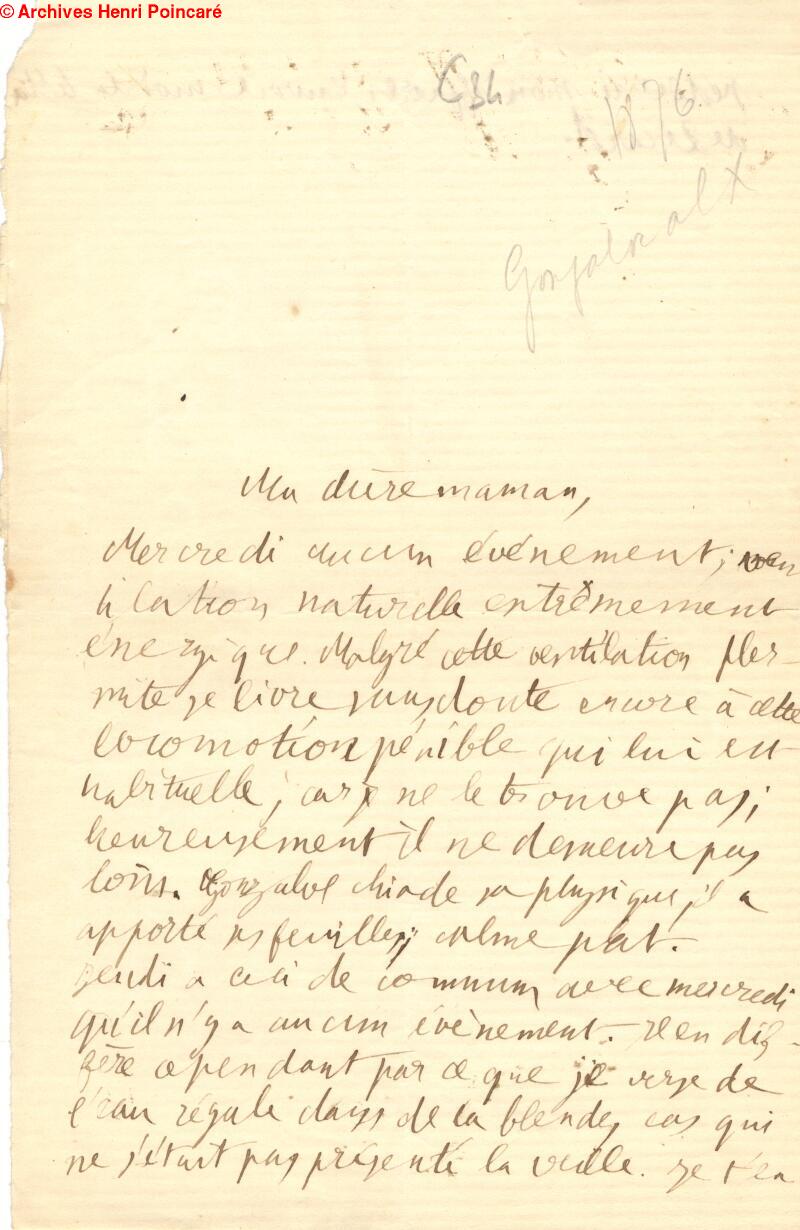 © Archives Henri Poincaré
C34
1876
Gonzalve al X
Ma chère maman,
Mercredi aucun événement; ven
tilation naturelle extrêmement
énergique. Malgré cette ventilation Her-
mite se livre sans doute encore à cette
locomotion pénible qui lui est
habituelle; car je ne le trouve pas;
heureusement il ne demeure pas
loin. Gonzalve chiade sa physique, il a
apporté ses feuilles; calme plat.
Jeudi a ceci de commun avec mercredi
qu'il n'y a aucun évènement. Il en dif-
fère cependant par ce que je verse de
l'eau régale dans de la blende, cas qui
ne s'était pas présenté la veille. Je t'en